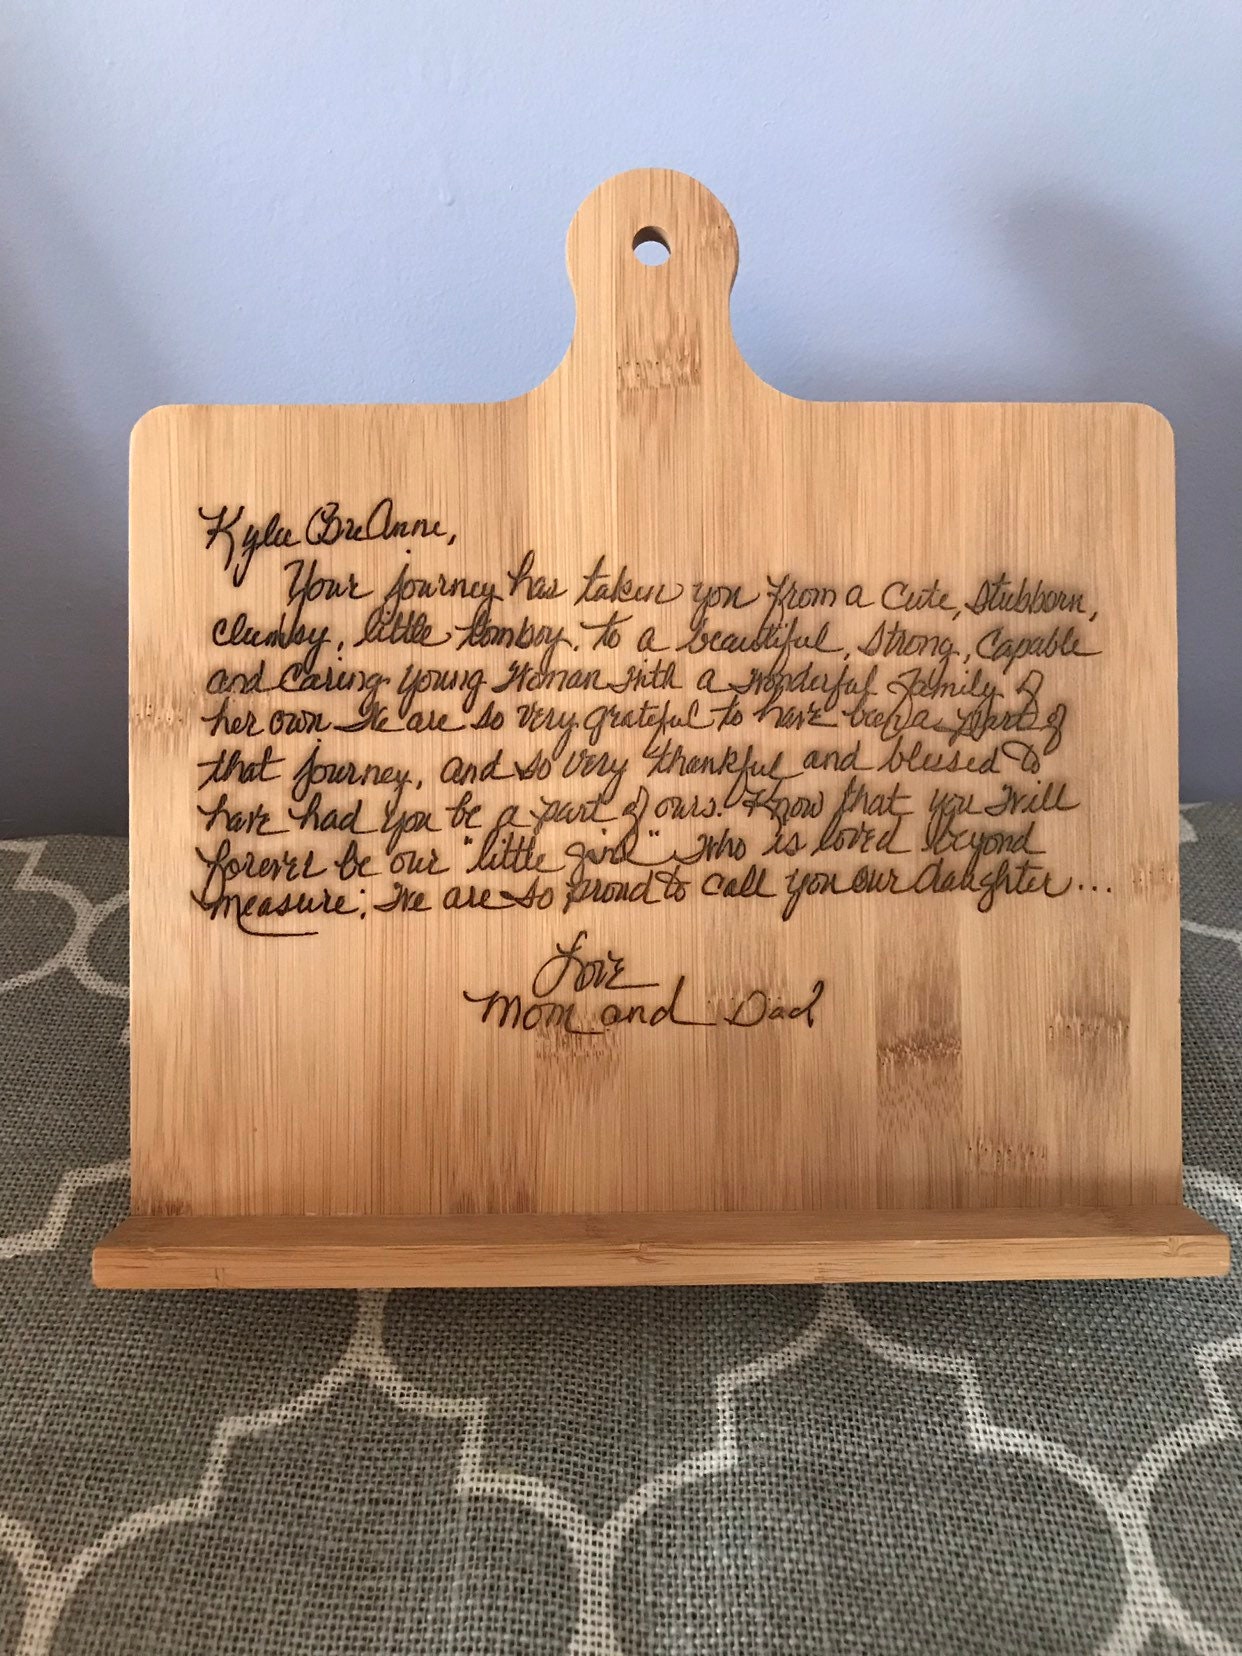 Kylie BreAnne,
Your journey has taken you from a cute, stubborn,
clumsy, little tomboy, to a beautiful, strong, capable
and caring young woman with a wonderful family of
her own. We are so very grateful to have been a part of
that journey, and so very thankful and blessed to
have had you be a part of ours. Know that you will
forever be our "little girl" who is loved beyond
measure; We are so proud to call you our daughter...
Love
Mom and Dad